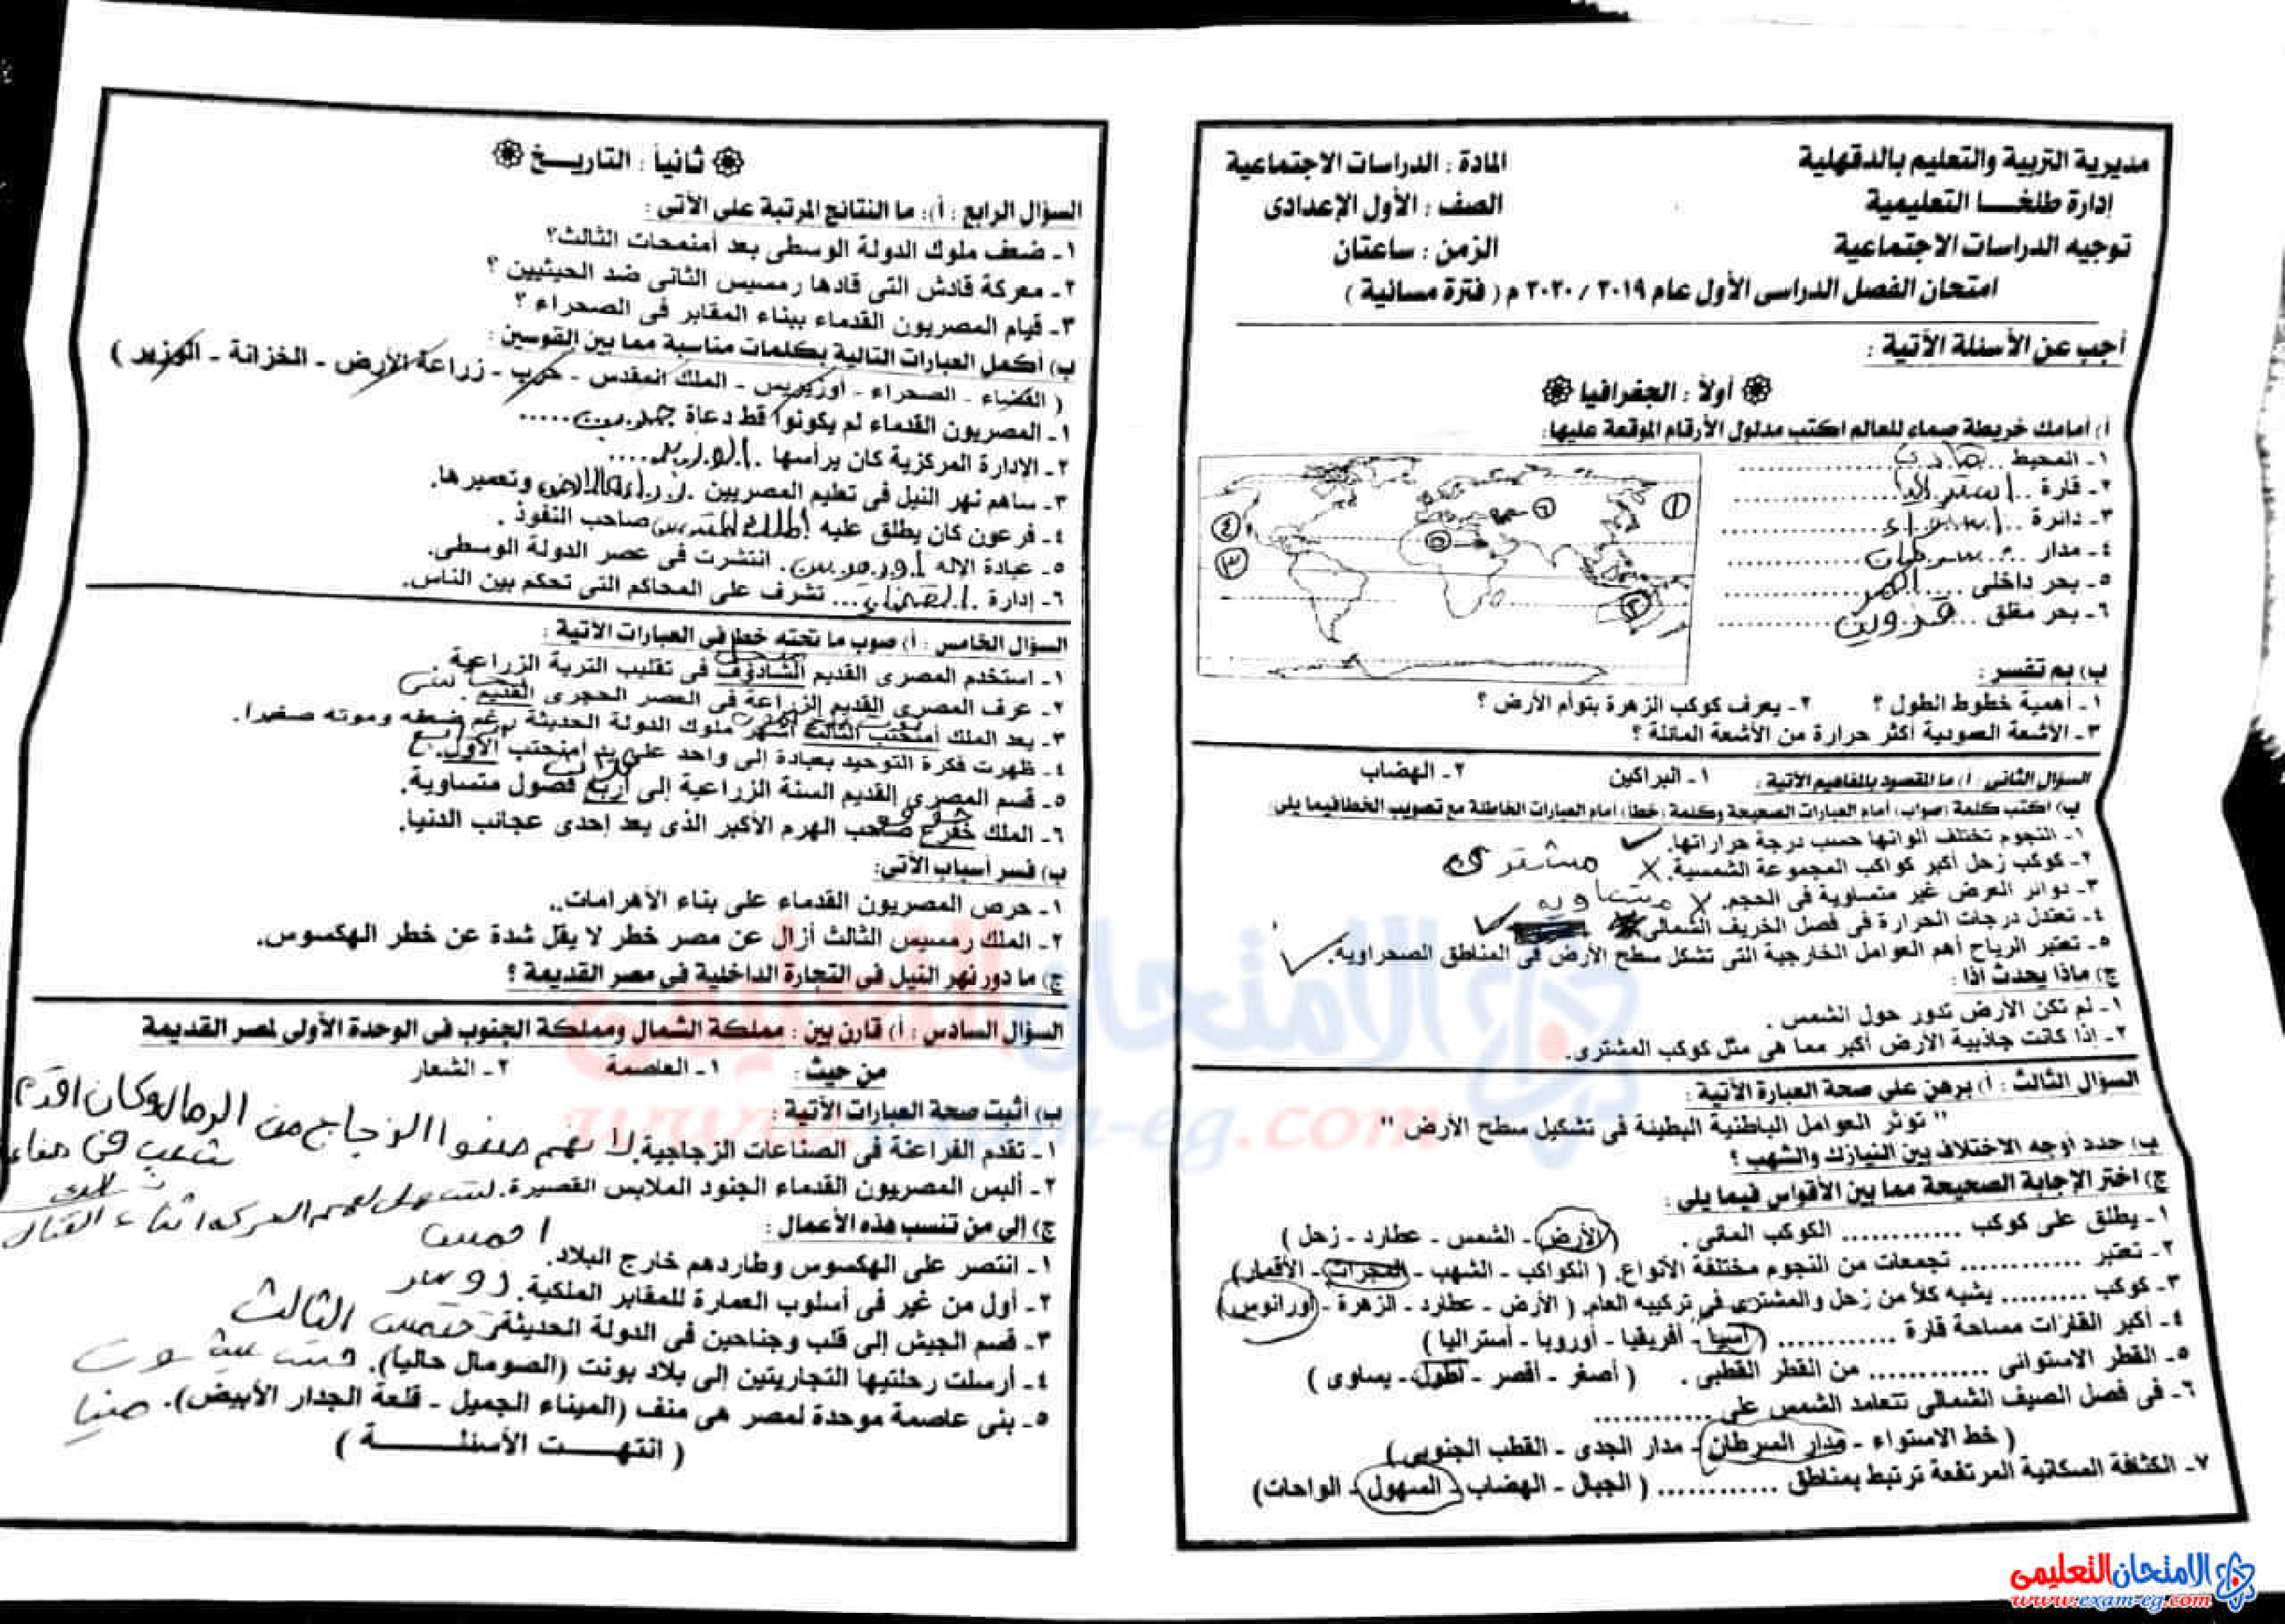 مديرية التربية والتعليم بالدقهلية
المادة : الدراسات الاجتماعية
إدارة طلخا التعليمية
الصف : الأول الإعدادى
توجيه الدراسات الاجتماعية
الزمن : ساعتان
امتحان الفصل الدراسى الأول عام ٢٠١٩ / ٢٠٢٠ م ( فترة مسائية )
أجب عن الأسئلة الآتية :
أولاً : الجغرافيا
أ) أمامك خريطة صماء للعالم اكتب مدلول الأرقام الموقعة عليها:
١- المحيط .. هادى ..........
٢- قارة .. استراليا ..........
٣- دائرة .. استواء ..........
٤- مدار .... سرطان ..........
٥- بحر داخلى .... احمر ..........
٦- بحر مغلق .... قزوين ..........
١ ٢ ٣ ٤ ٥ ٦
ب) بم تفسر :
١- أهمية خطوط الطول ؟ ٢- يعرف كوكب الزهرة بتوأم الأرض ؟
٣- الأشعة العمودية أكثر حرارة من الأشعة المائلة ؟
السؤال الثانى : أ) ما المقصود بالمفاهيم الآتية : ١- البراكين ٢- الهضاب
ب) اكتب كلمة (صواب) أمام العبارات الصحيحة وكلمة (خطأ) أمام العبارات الخاطئة مع تصويب الخطأ فيما يلى:
١- النجوم تختلف الوانها حسب درجة حراراتها. ✓
٢- كوكب زحل أكبر كواكب المجموعة الشمسية. X مشترى
٣- دوائر العرض غير متساوية فى الحجم. X متساويه
٤- تعتدل درجات الحرارة فى فصل الخريف الشمالى ✓
٥- تعتبر الرياح أهم العوامل الخارجية التى تشكل سطح الأرض فى المناطق الصحراوية. ✓
ج) ماذا يحدث اذا :
١- لم تكن الأرض تدور حول الشمس .
٢- إذا كانت جاذبية الأرض أكبر مما هى مثل كوكب المشترى.
السؤال الثالث : أ) برهن على صحة العبارة الآتية :
" تؤثر العوامل الباطنية البطيئة فى تشكيل سطح الأرض "
ب) حدد أوجه الاختلاف بين النيازك والشهب ؟
ج) اختر الإجابة الصحيحة مما بين الأقواس فيما يلى :
١- يطلق على كوكب ............ الكوكب المائى . (الأرض - الشمس - عطارد - زحل )
٢- تعتبر ............ تجمعات من النجوم مختلفة الأنواع. ( الكواكب - الشهب - المجرات - الأقمار)
٣- كوكب ......... يشبه كلاً من زحل والمشترى فى تركيبه العام. ( الأرض - عطارد - الزهرة - أورانوس )
٤- أكبر القارات مساحة قارة ............ ( آسيا - أفريقيا - أوروبا - أستراليا )
٥- القطر الاستوائى ............ من القطر القطبى . ( أصغر - أقصر - أطول - يساوى )
٦- فى فصل الصيف الشمالى تتعامد الشمس على ............
( خط الاستواء - مدار السرطان - مدار الجدى - القطب الجنوبى )
٧- الكثافة السكانية المرتفعة ترتبط بمناطق ............ ( الجبال - الهضاب - السهول - الواحات)
ثانياً : التاريخ
السؤال الرابع : أ): ما النتائج المرتبة على الآتى :
١- ضعف ملوك الدولة الوسطى بعد أمنمحات الثالث؟
٢- معركة قادش التى قادها رمسيس الثانى ضد الحيثيين ؟
٣- قيام المصريون القدماء ببناء المقابر فى الصحراء ؟
ب) أكمل العبارات التالية بكلمات مناسبة مما بين القوسين :
( القضاء - الصحراء - أوزيريس - الملك المقدس - حرب - زراعة الأرض - الخزانة - الوزير )
١- المصريون القدماء لم يكونوا قط دعاة .....
٢- الإدارة المركزية كان يرأسها . الوزير ....
٣- ساهم نهر النيل فى تعليم المصريين . زراعة الارض وتعميرها.
٤- فرعون كان يطلق عليه الملك المقدس صاحب النفوذ .
٥- عبادة الإله اوزيريس . انتشرت فى عصر الدولة الوسطى.
٦- إدارة . القضاء ... تشرف على المحاكم التى تحكم بين الناس.
السؤال الخامس : أ) صوب ما تحته خط فى العبارات الآتية :
١- استخدم المصرى القديم الشادوف فى تقليب التربة الزراعية .
٢- عرف المصرى القديم الزراعة فى العصر الحجرى القديم .
٣- يعد الملك أمنحتب الثالث أشهر ملوك الدولة الحديثة رغم ضعفه وموته صغيراً.
٤- ظهرت فكرة التوحيد بعبادة إلى واحد على يد أمنحتب الأول. رابع
٥- قسم المصرى القديم السنة الزراعية إلى أربع فصول متساوية.
٦- الملك خفرع صاحب الهرم الأكبر الذى يعد إحدى عجائب الدنيا.
خوفو
ب) فسر أسباب الآتى:
١- حرص المصريون القدماء على بناء الأهرامات..
٢- الملك رمسيس الثالث أزال عن مصر خطر لا يقل شدة عن خطر الهكسوس.
ج) ما دور نهر النيل فى التجارة الداخلية فى مصر القديمة ؟
السؤال السادس : أ) قارن بين : مملكة الشمال ومملكة الجنوب فى الوحدة الأولى لمصر القديمة
من حيث : ١- العاصمة ٢- الشعار
ب) أثبت صحة العبارات الآتية :
١- تقدم الفراعنة فى الصناعات الزجاجية. لانهم صنعوا الزجاج من الرمال وكان اقدم شعب فى
٢- ألبس المصريون القدماء الجنود الملابس القصيرة. لتسهل لهم الحركة اثناء القتال
ج) إلى من تنسب هذه الأعمال :
١- انتصر على الهكسوس وطاردهم خارج البلاد. احمس
٢- أول من غير فى أسلوب العمارة للمقابر الملكية. زوسر
٣- قسم الجيش إلى قلب وجناحين فى الدولة الحديثة. تحتمس الثالث
٤- أرسلت رحلتيها التجاريتين إلى بلاد بونت (الصومال حالياً). حتشبسوت
٥- بنى عاصمة موحدة لمصر هى منف (الميناء الجميل - قلعة الجدار الأبيض). مينا
( انتهت الأسئلة )
الامتحان التعليمى
www.exam-eg.com
الامتحان التعليمى
www.exam-eg.com